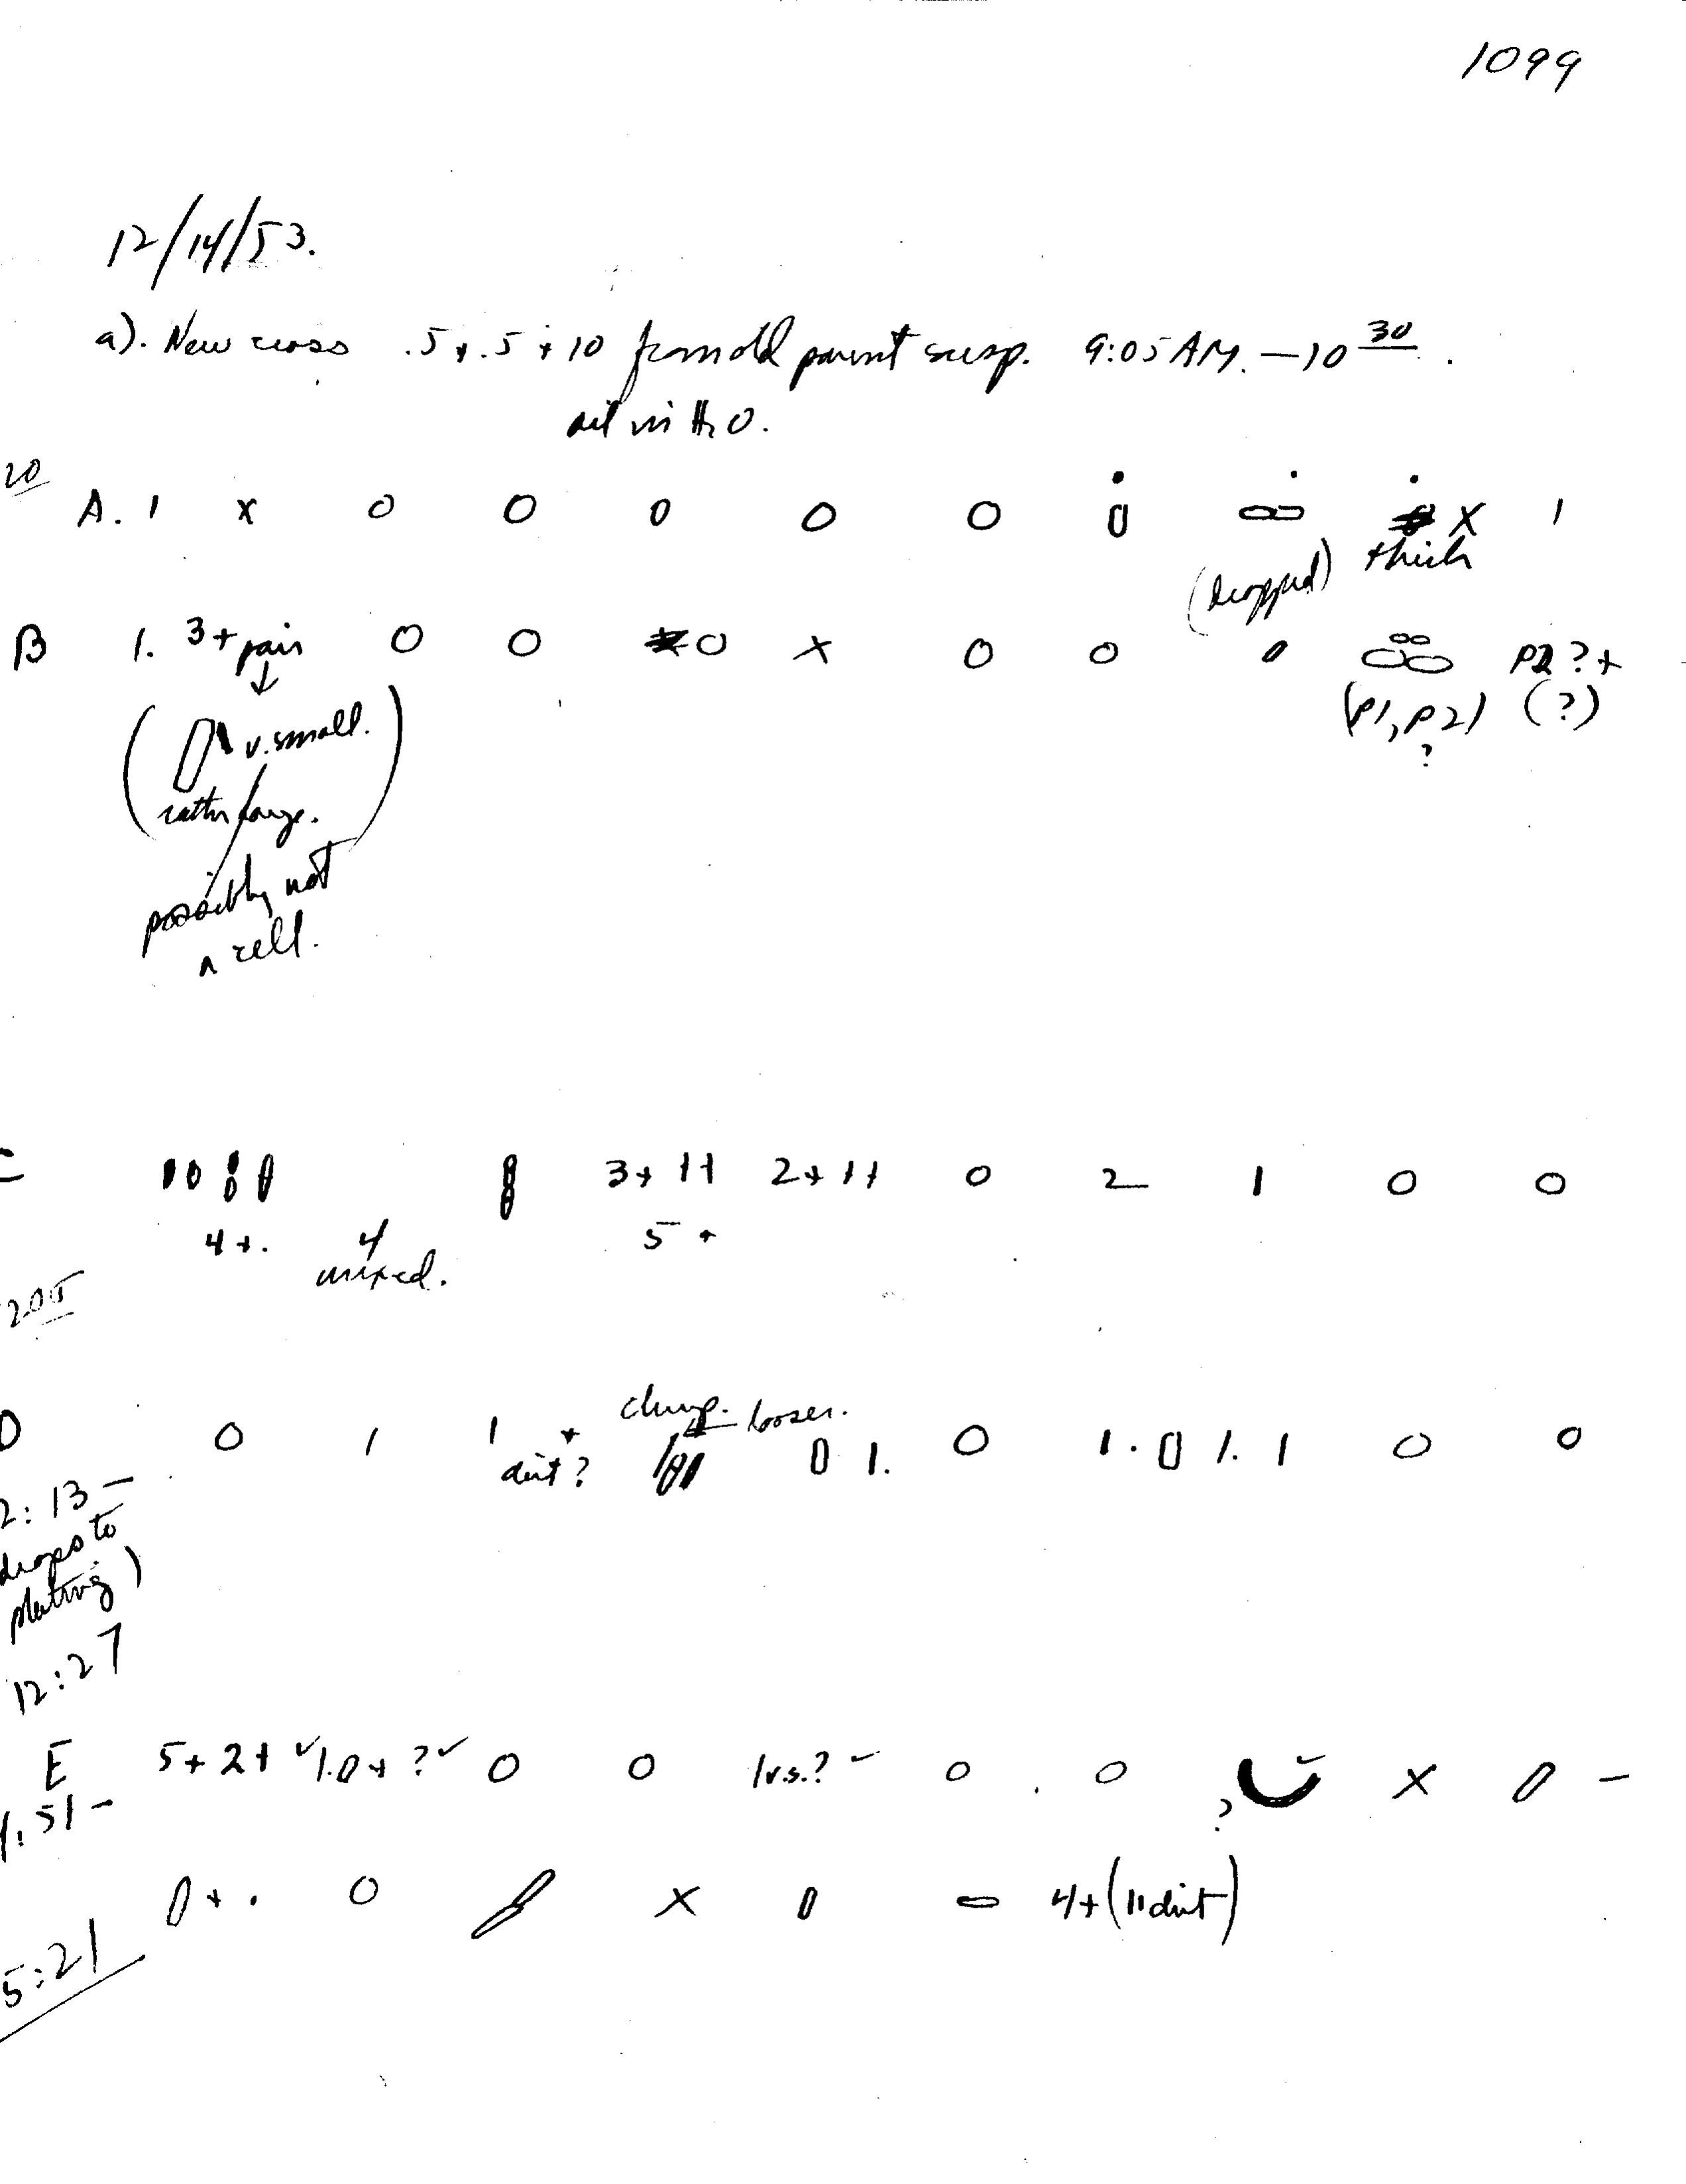 1099
12/14/53.
a). New cross .5 + .5 + 10 from old parent susp. 9:05 AM. — 10 30.
dil in H2O.
20
A. 1 x 0 0 0 0 0 X 1
(dropped) thick
B 1. 3+ pair 0 0 0 x 0 0 P2 ? +
(P1, P2) (?)
?
v. small.
rather large.
possibly not
a cell.
3+ 11 2+ 11 0 2 1 0 0
4+. 4 5+
mixed.
205
clump. looser.
D 0 1 1 + 1. 0 1. 1. 1 0 0
dirt?
2:13 —
drops to
plating)
12:27
E 5+ 2+ ✓ 1. 0 + ? ✓ 0 0 1 v.s.? ✓ 0 . 0 ✓ X 0 –
?
1:51 –
0 + . 0 X 0 4+ (11 dirt)
5:21